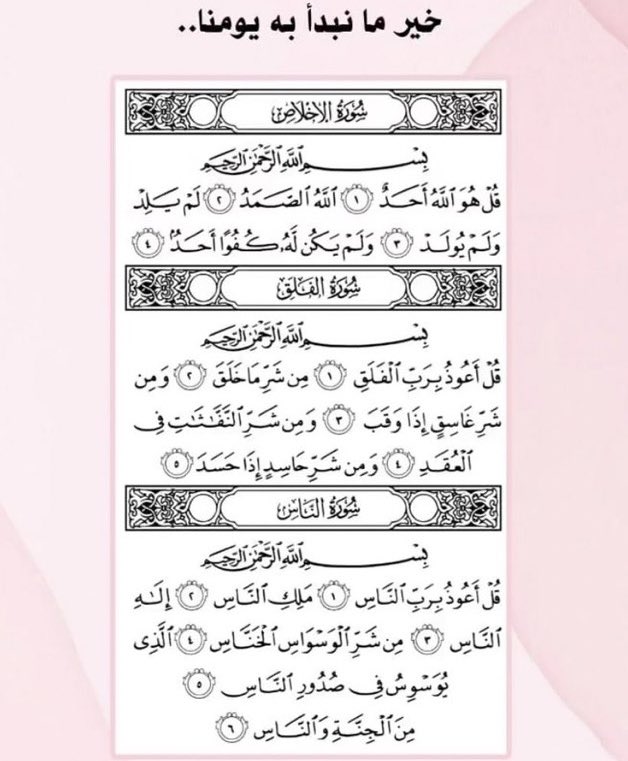 خير ما نبدأ به يومنا..
سُورَةُ الإِخْلَاصِ
بِسْمِ اللَّهِ الرَّحْمَٰنِ الرَّحِيمِ
قُلْ هُوَ اللَّهُ أَحَدٌ ١ اللَّهُ الصَّمَدُ ٢ لَمْ يَلِدْ
وَلَمْ يُولَدْ ٣ وَلَمْ يَكُن لَّهُۥ كُفُوًا أَحَدٌۢ ٤
سُورَةُ الفَلَقِ
بِسْمِ اللَّهِ الرَّحْمَٰنِ الرَّحِيمِ
قُلْ أَعُوذُ بِرَبِّ الْفَلَقِ ١ مِن شَرِّ مَا خَلَقَ ٢ وَمِن
شَرِّ غَاسِقٍ إِذَا وَقَبَ ٣ وَمِن شَرِّ النَّفَّٰثَٰتِ فِى
الْعُقَدِ ٤ وَمِن شَرِّ حَاسِدٍ إِذَا حَسَدَ ٥
سُورَةُ النَّاسِ
بِسْمِ اللَّهِ الرَّحْمَٰنِ الرَّحِيمِ
قُلْ أَعُوذُ بِرَبِّ النَّاسِ ١ مَلِكِ النَّاسِ ٢ إِلَٰهِ
النَّاسِ ٣ مِن شَرِّ الْوَسْوَاسِ الْخَنَّاسِ ٤ الَّذِى
يُوَسْوِسُ فِى صُدُورِ النَّاسِ ٥
مِنَ الْجِنَّةِ وَالنَّاسِ ٦